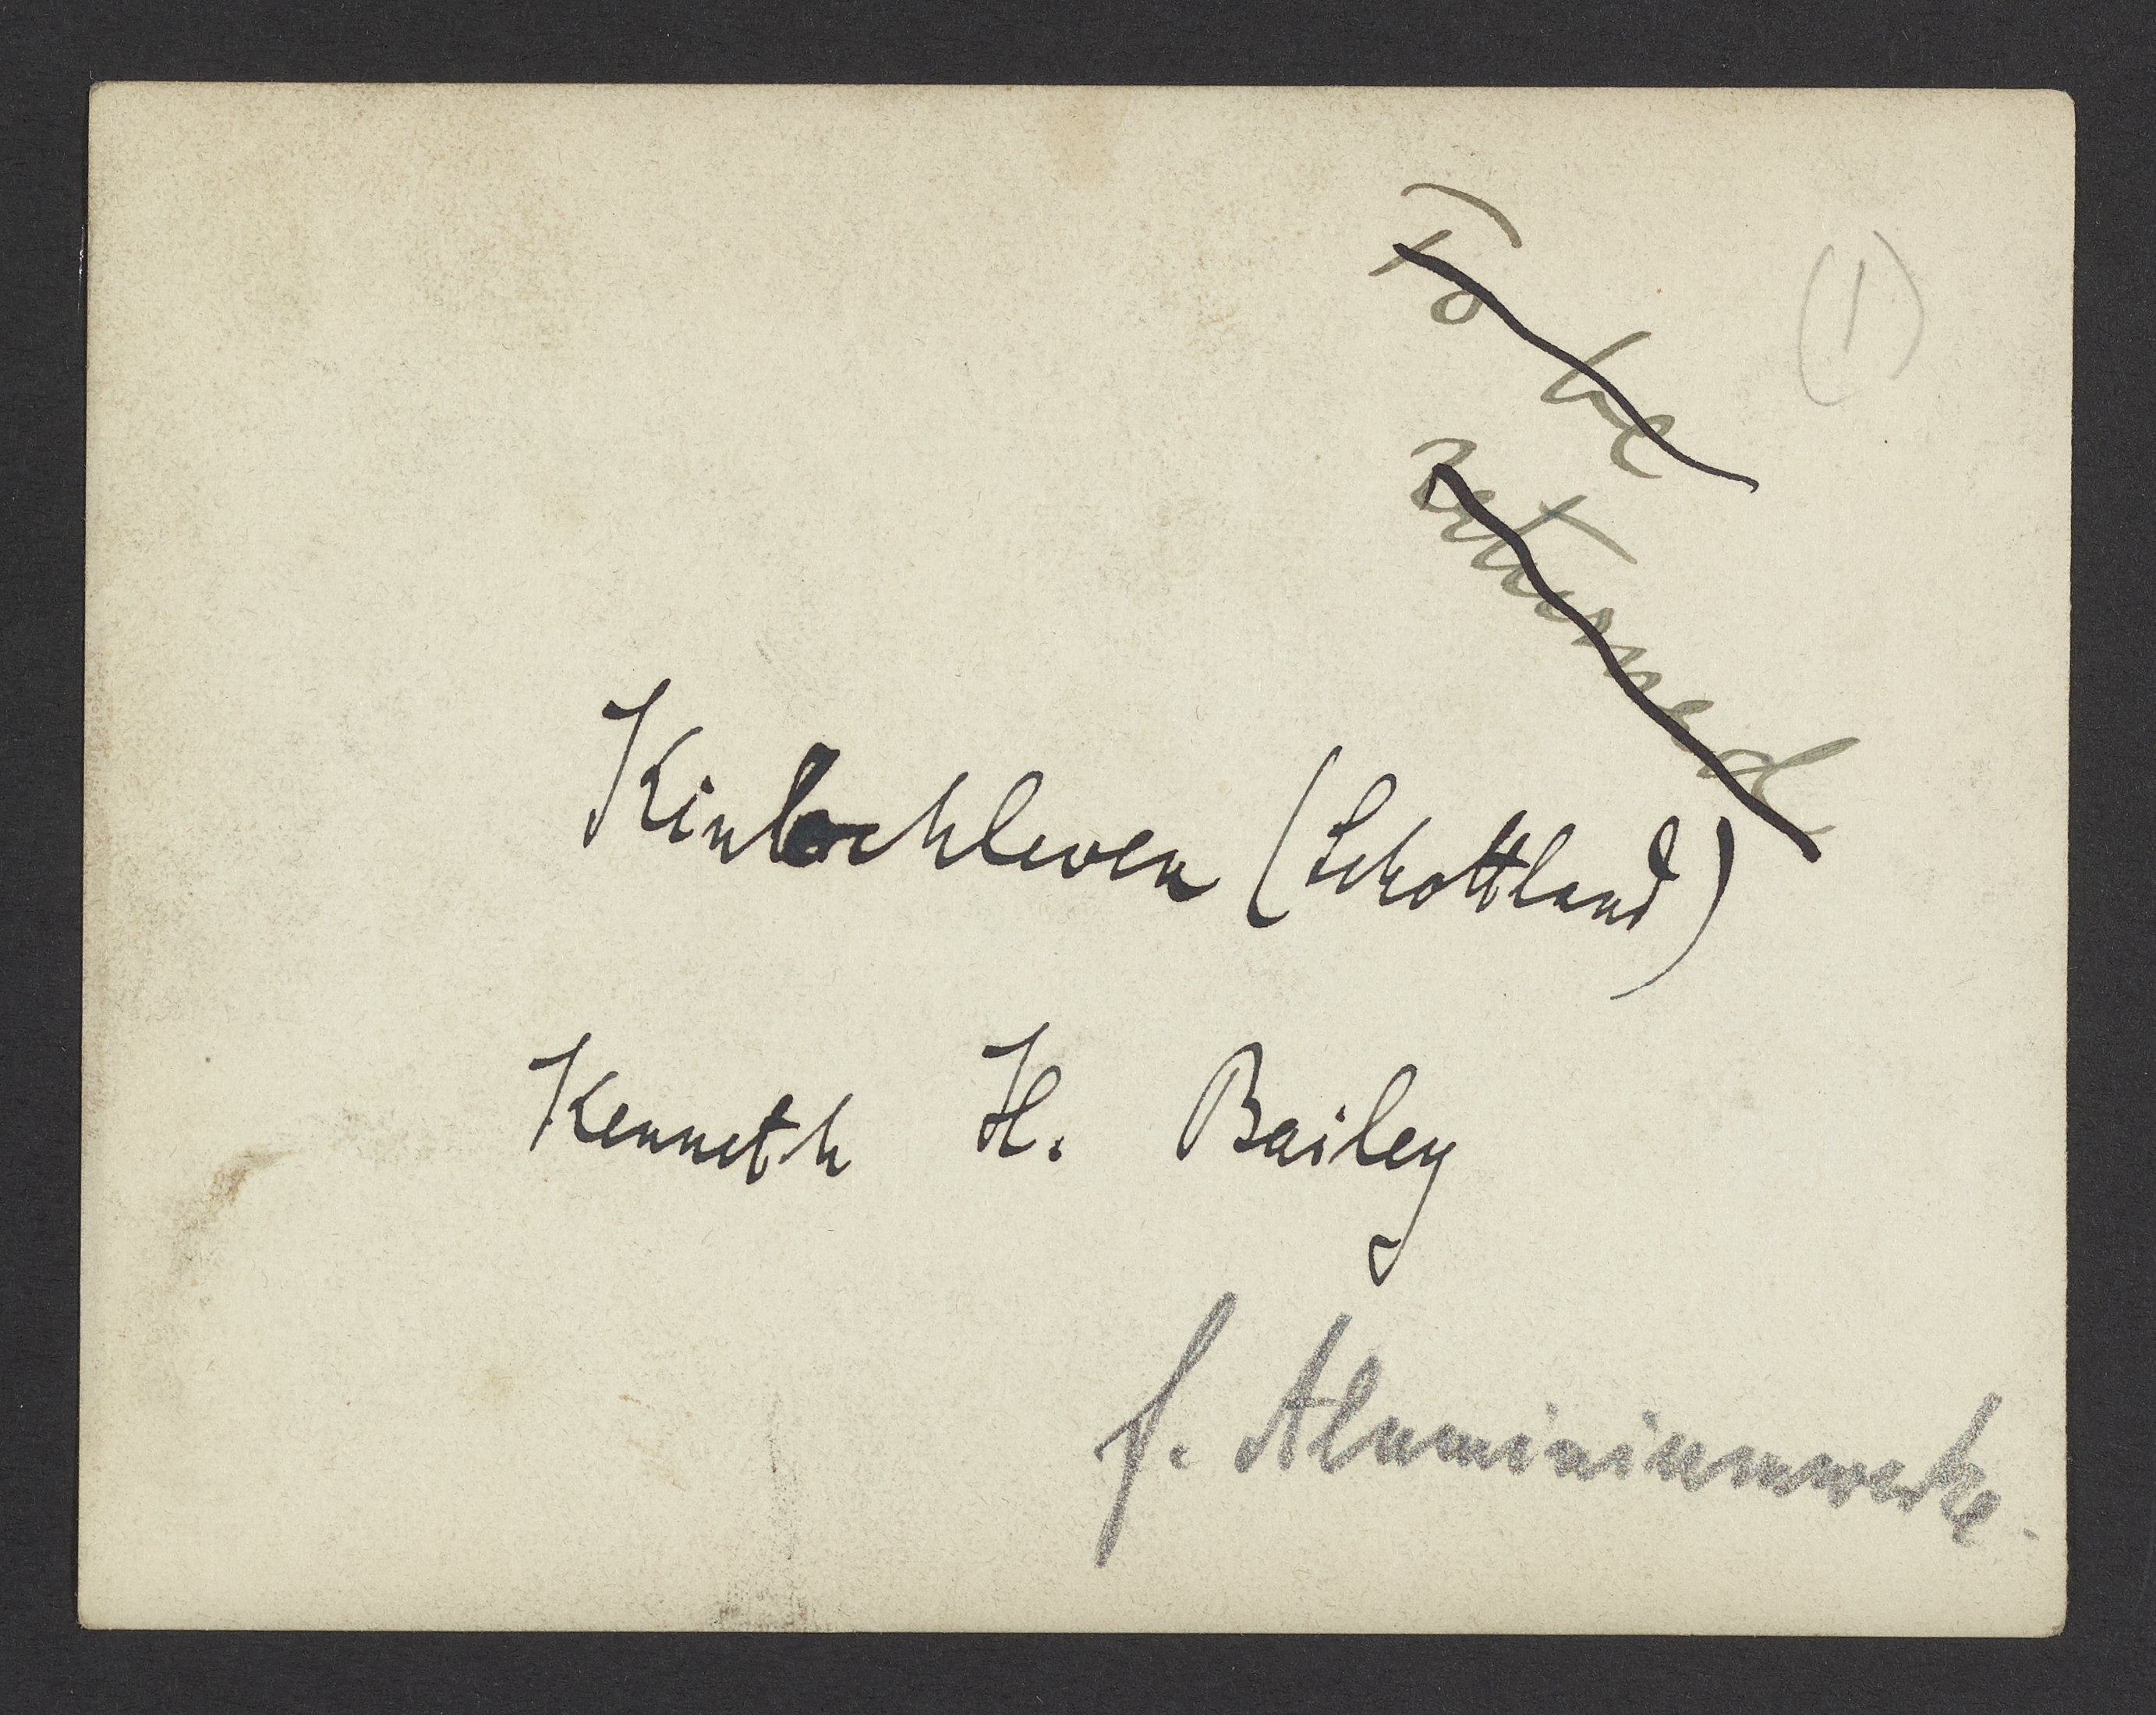 (1)
To be
Returned
Kinlochleven (Schottland)
Kenneth H. Bailey
f. Aluminiumwerke.